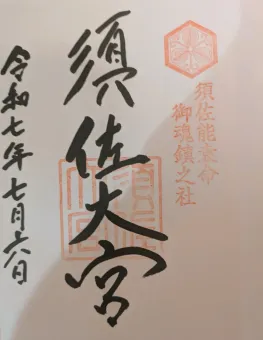 須佐能袁命
御魂鎮之社
須佐大宮
令和七年七月六日